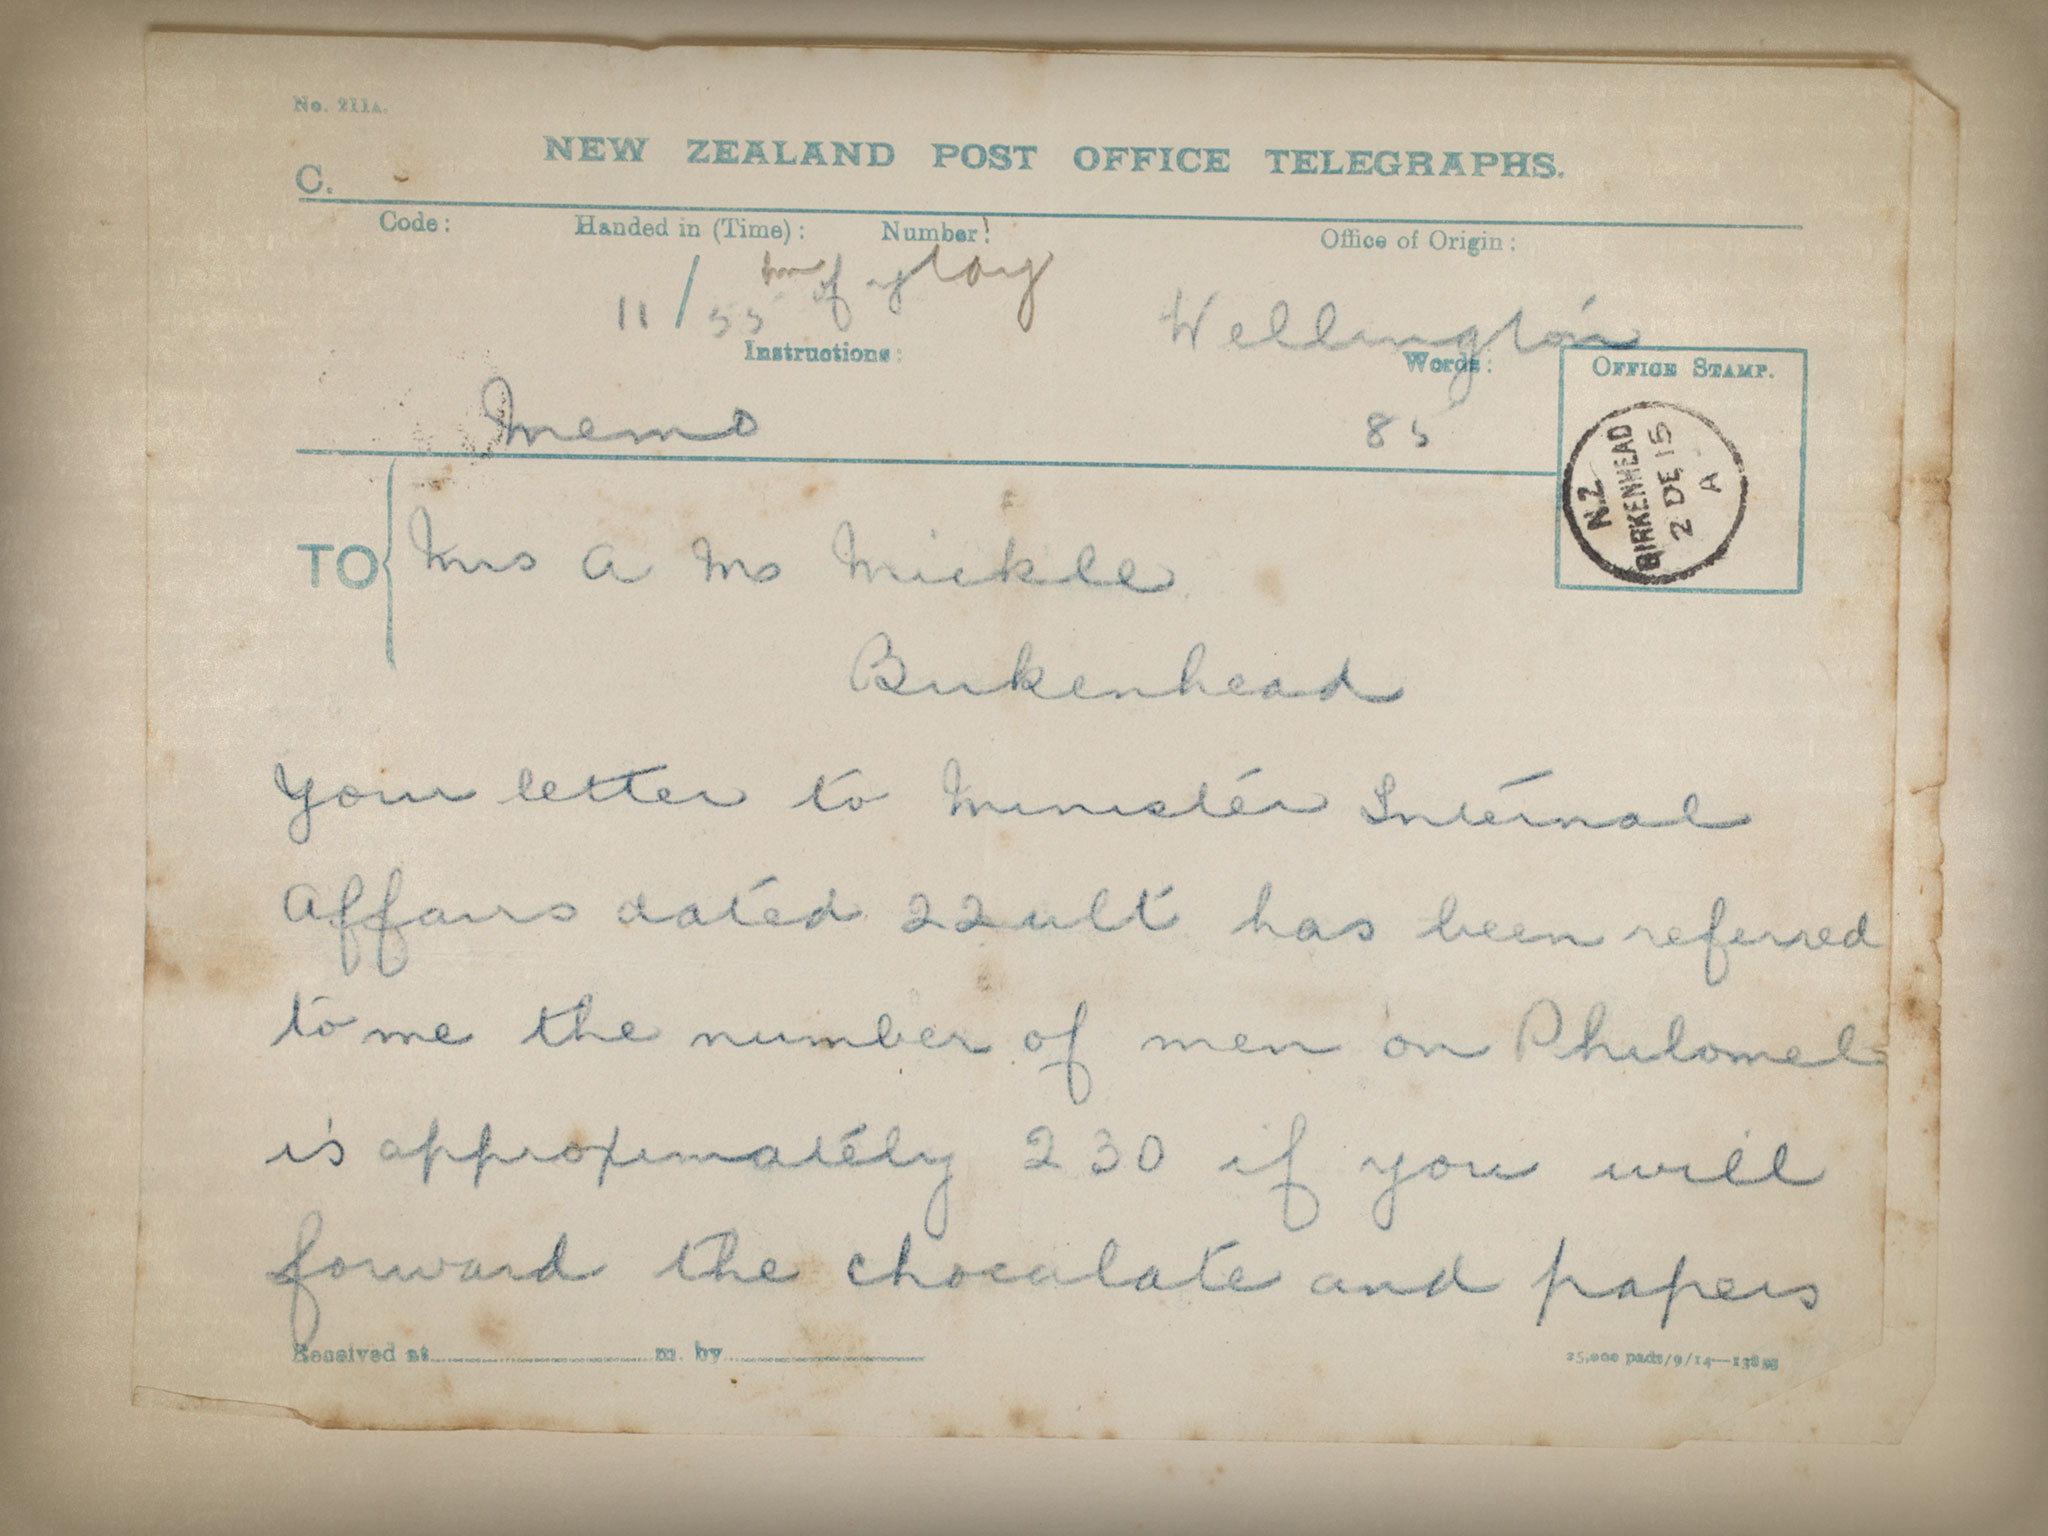 No. 211A.
C.
NEW ZEALAND POST OFFICE TELEGRAPHS.
Code: Handed in (Time): Number: Office of Origin:
11/55 of yday Wellington
Instructions: Words:
Memo 85
OFFICE STAMP.
N.Z
BIRKENHEAD
2 DE 15
A
TO Mrs A Mc Mickle
Birkenhead
Your letter to Minister Internal
Affairs dated 22 ult has been referred
to me the number of men on Philomel
is approximately 230 if you will
forward the chocolate and papers
Received at m. by
25,000 pads/9/14—